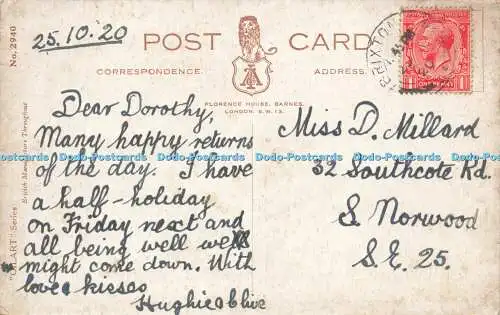 25.10.20
POST CARD
CORRESPONDENCE.
ADDRESS.
FLORENCE HOUSE, BARNES,
LONDON, S.W.13.
No. 2940
British Manufacture Throughout
"ALLART" Series
BRIXTON
ONE PENNY
Dear Dorothy,
Many happy returns
of the day. I have
a half-holiday
on Friday next and
all being well we
might come down. With
love & kisses
Hughie & Clive
Miss D. Millard
52 Southcote Rd.
S. Norwood
S.E. 25.
Dodo-Postcards Dodo-Postcards Dodo-Postcards Dodo-Postcards Dodo-Postcards